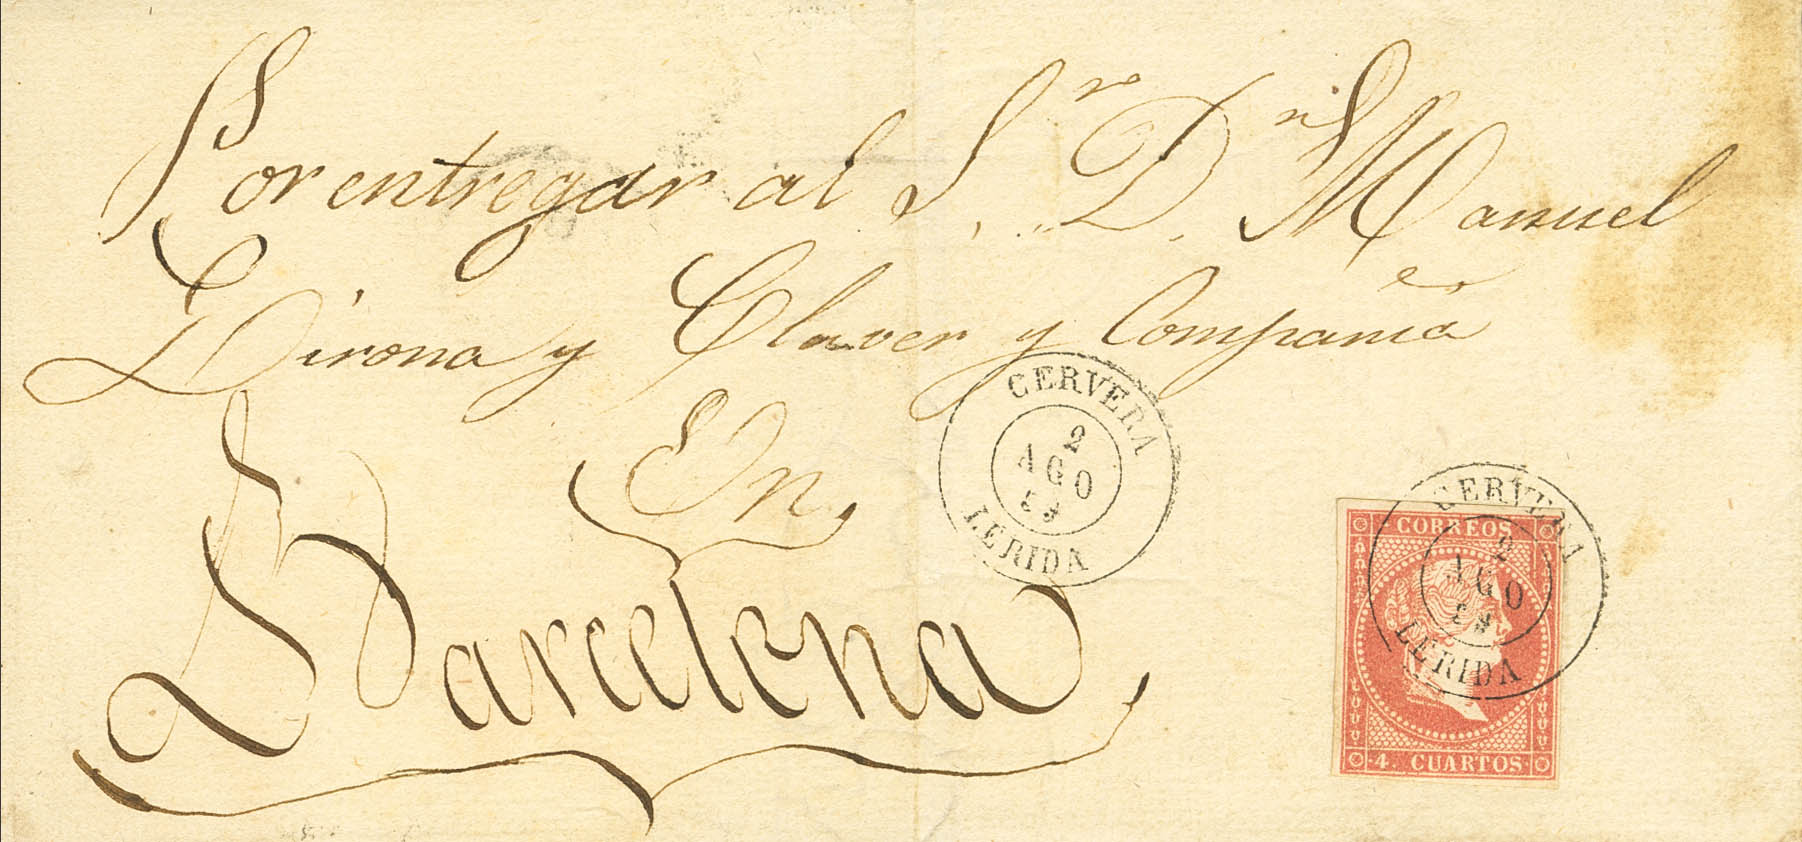 Por entregar al S.r D.n Manuel
Girona y Claver y Compañia
En
Barcelona
CERVERA
2
AGO
59
LERIDA
CERVERA
2
AGO
59
LERIDA
CORREOS
4 CUARTOS